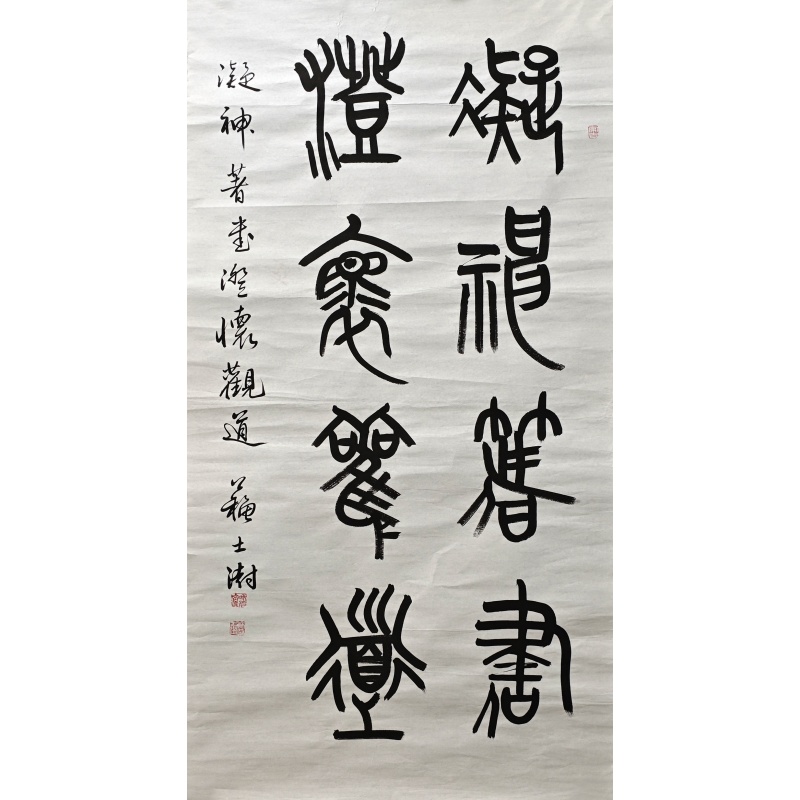 凝神著書
澄懷觀道
凝神著書澄懷觀道 蘇士澍